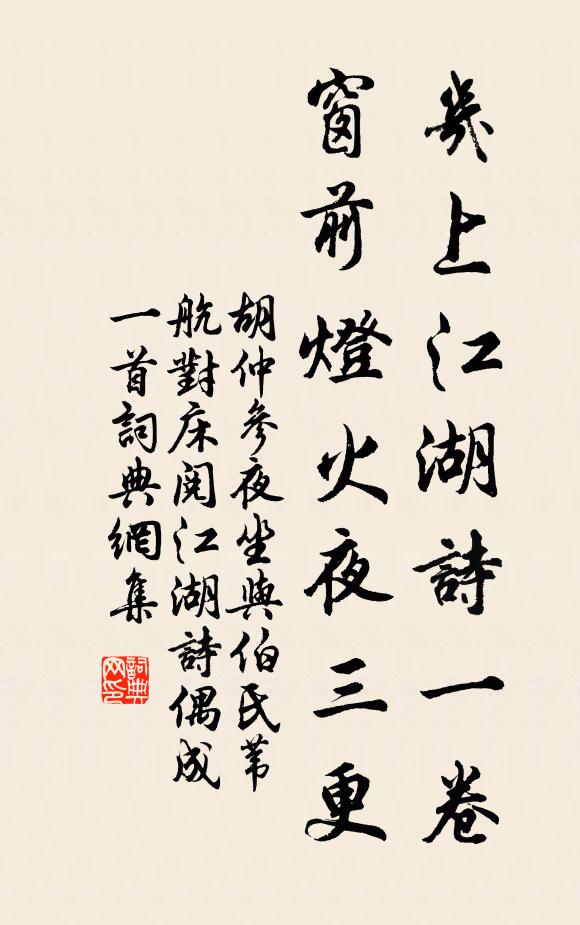 幾上江湖詩一卷
窗前燈火夜三更
胡仲參夜坐與伯氏葦
航對床閱江湖詩偶成
一首詞典網集
詞典
网印